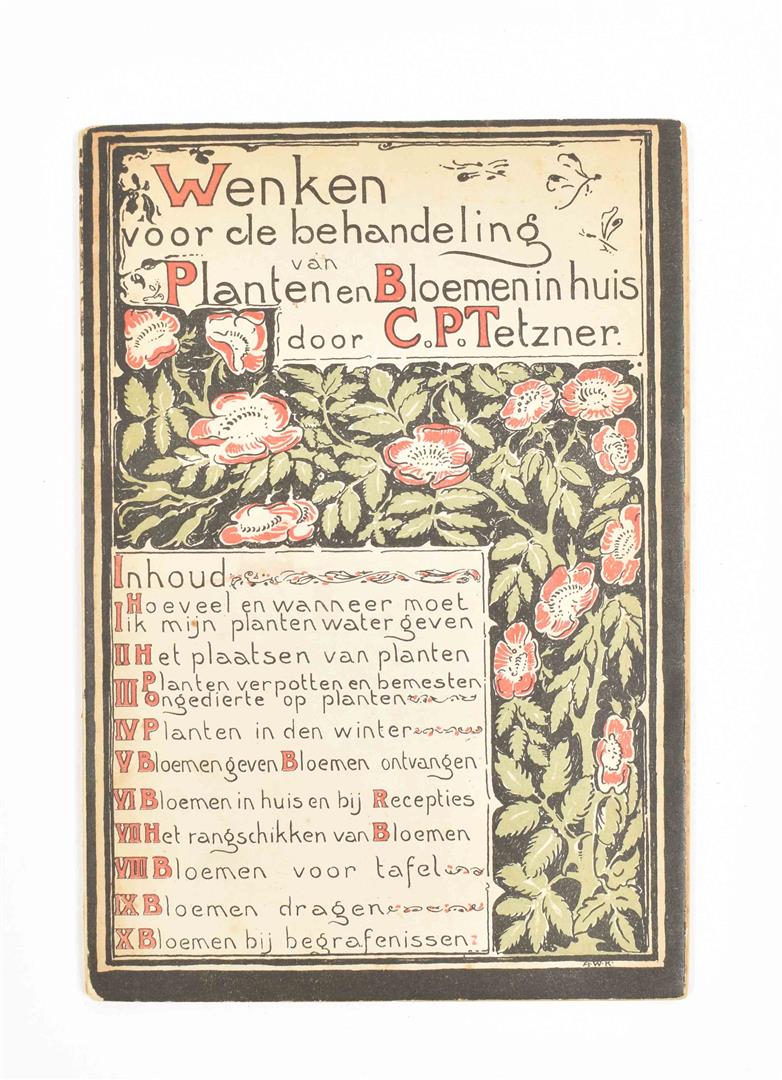 Wenken
voor de behandeling
van
Planten en Bloemen in huis
door C.P. Tetzner.
Inhoud
I Hoeveel en wanneer moet
ik mijn planten water geven
II Het plaatsen van planten
III Planten verpotten en bemesten
Ongedierte op planten
IV Planten in den winter
V Bloemen geven Bloemen ontvangen
VI Bloemen in huis en bij Recepties
VII Het rangschikken van Bloemen
VIII Bloemen voor tafel
IX Bloemen dragen
X Bloemen bij begrafenissen
A.W.K.